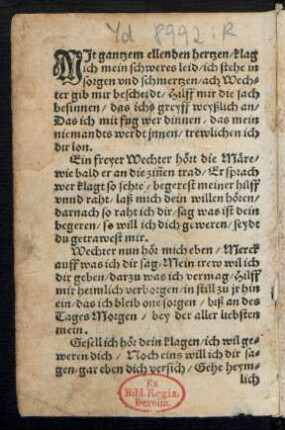 Yd 8992:R
MIt gantzem ellenden hertzen/klag
ich mein schweres leid/ich stehe in
sorgen vnd schmertzen/ach Wech-
ter gib mir bescheidt/Hilff mir die sach
besinnen/das ichs greyff weyßlich an/
Das ich mit fug wer dinnen/das mein
niemandts werdt jnnen/trewlichen ich
dir lon.
Ein freyer Wechter hört die Märe/
wie bald er an die ziñen trad/Er sprach
wer klagt so sehre/begerest meiner hilff
vnnd raht/laß mich dein willen hören/
darnach so raht ich dir/sag was ist dein
begeren/so will ich dich geweren/seydt
du getrawest mir.
Wechter nun hör mich eben/Merck
auff was ich dir sag/Mein trew wil ich
dir geben/darzu was ich vermag/Hilff
mir heimlich verborgen/in still zu jr hin
ein/das ich bleib one sorgen/biß an des
Tages Morgen/bey der aller liebsten
mein.
Gesell ich hör dein klagen/ich wil ge-
weren dich/Noch eins will ich dir sa-
gen/gar eben dich versich/Gehe heym-
lich
Ex
Bibl. Regia
Berolin.